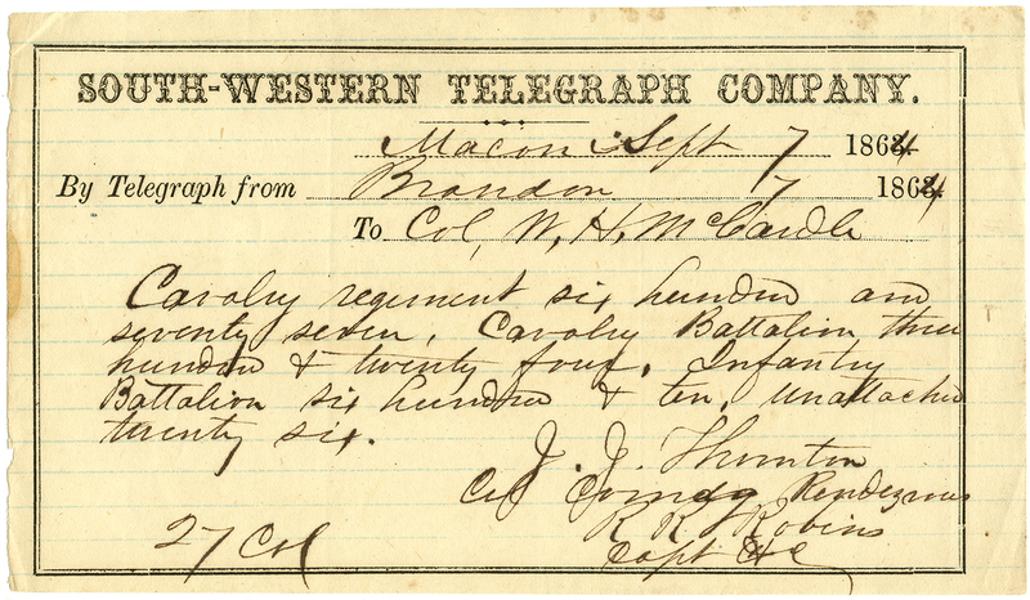 SOUTH-WESTERN TELEGRAPH COMPANY.
Macon Sept 7 1864
By Telegraph from Brandon 7 1864
To Col, W, H, McCardle
Cavalry regiment six hundred and
seventy seven, Cavalry Battalion three
hundred & twenty four. Infantry
Battalion six hundred & ten, unattached
twenty six.
J. J. Thornton
Col Comdg Rendezvous
R R Robins
Capt
27 Col